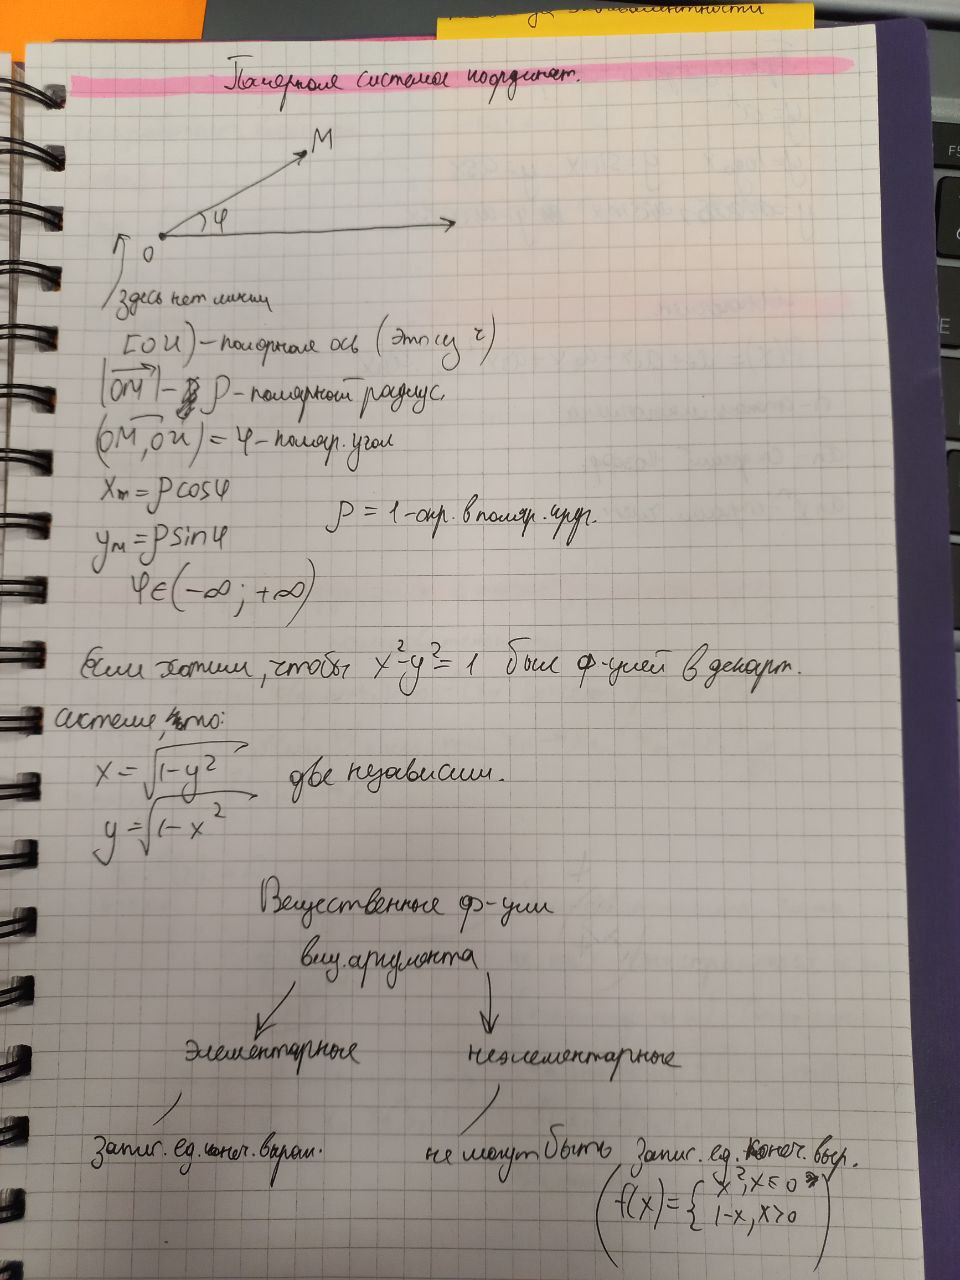 Полярная система координат.
M
φ
O
Здесь нет линии
[ОИ) - полярная ось (
|OM| - ρ - полярный радиус.
(OM, ОИ) = φ - поляр. угол
Xm = ρcosφ
ρ = 1 - окр. в поляр.
yм = ρsinφ
φ∈(-∞; +∞)
Если хотим, чтобы x²-y²=1 был ф-цией в декарт.
системе, то:
x = √1-y² две независим.
y = √1-x²
Вещественные ф-ции
вещ. аргумента
элементарные неэлементарные
запис. ед. конеч. выраж. не могут быть запис. ед. конеч. выр.
(f(x) = { x², x ≤ 0
1-x, x>0 )